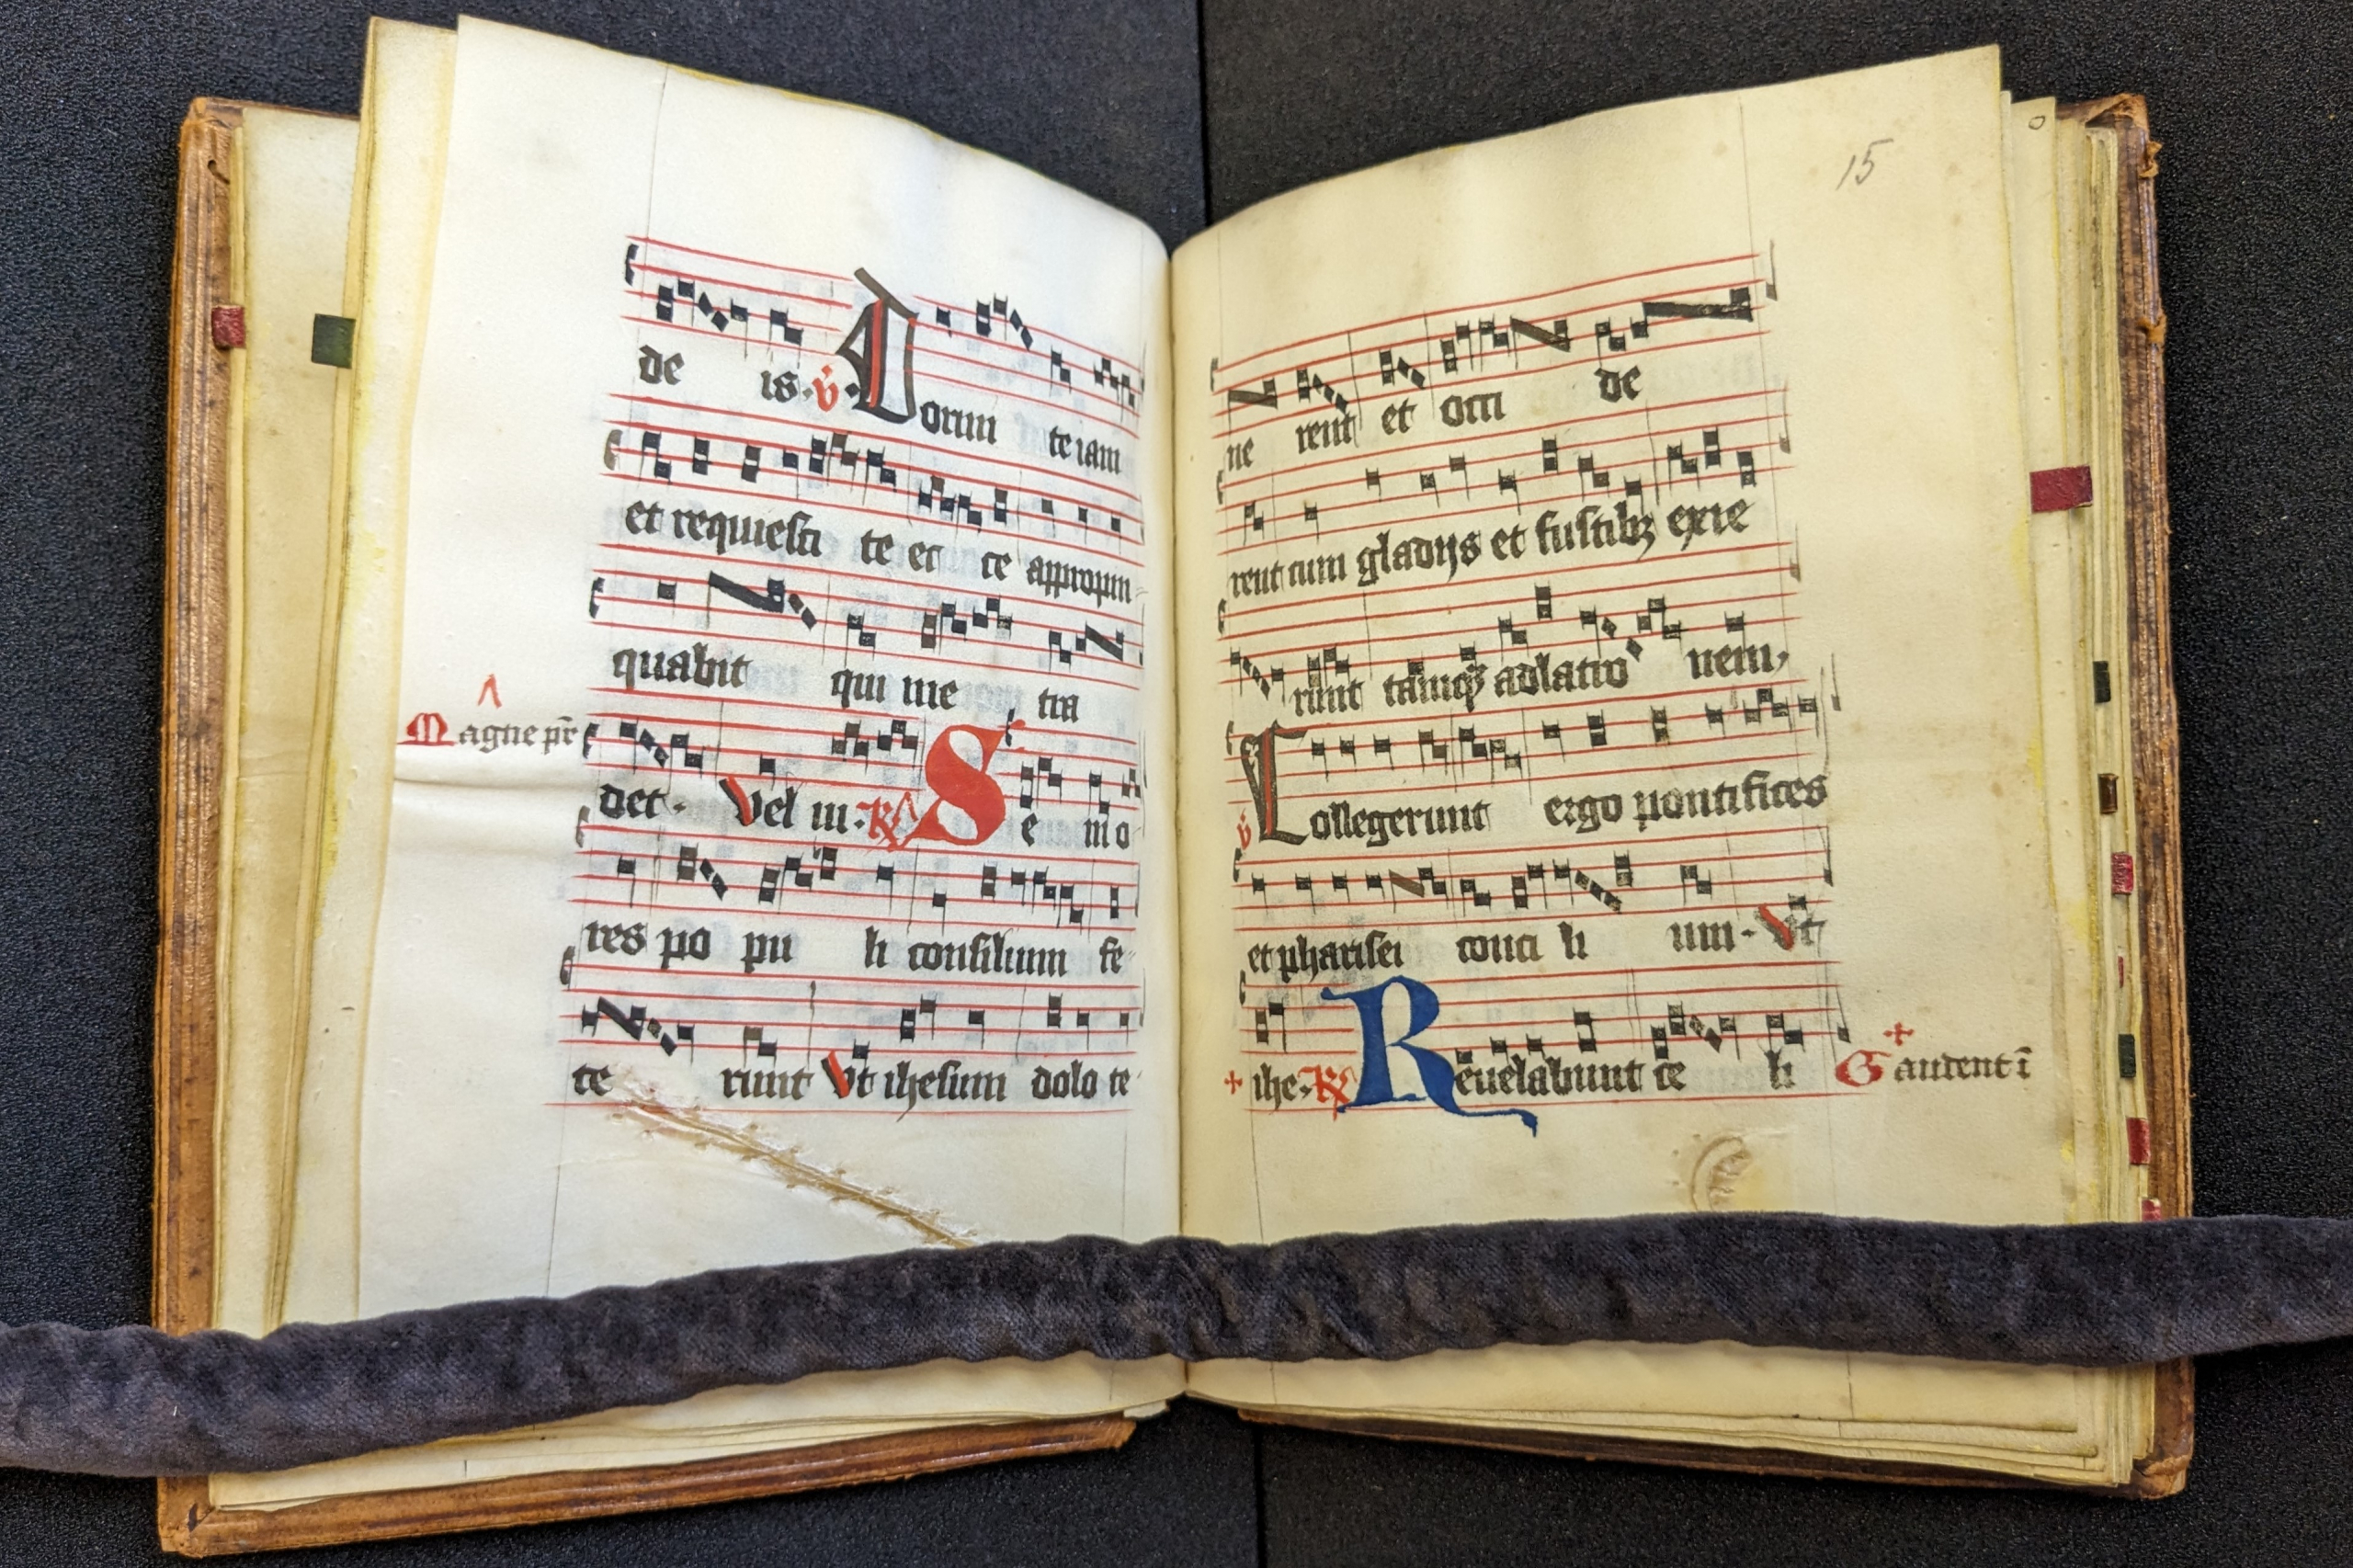 de is. v̇. Dormi te iam
et requiesci te et ce appropin-
quabit qui me tra
Magne pr̄
det. Vel iii. R Se nio
res po pu li consilium fe-
ce runt Vt ihesum dolo te-
15
ne rent et occi de
rent cum gladijs et fustibꝫ exie
runt tamqꝫ ad latro nem,
v̇ Collegerunt ergo pontifices
et pharisei conci li um. Vt
+ ihe. R Reuelabunt ce li
Gaudent ī